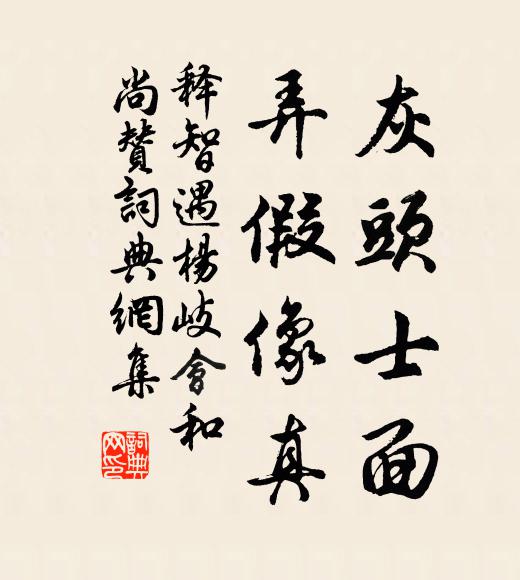 灰頭士面
弄假像真
释智遇楊岐會和
尚贊詞典網集
詞典
网印